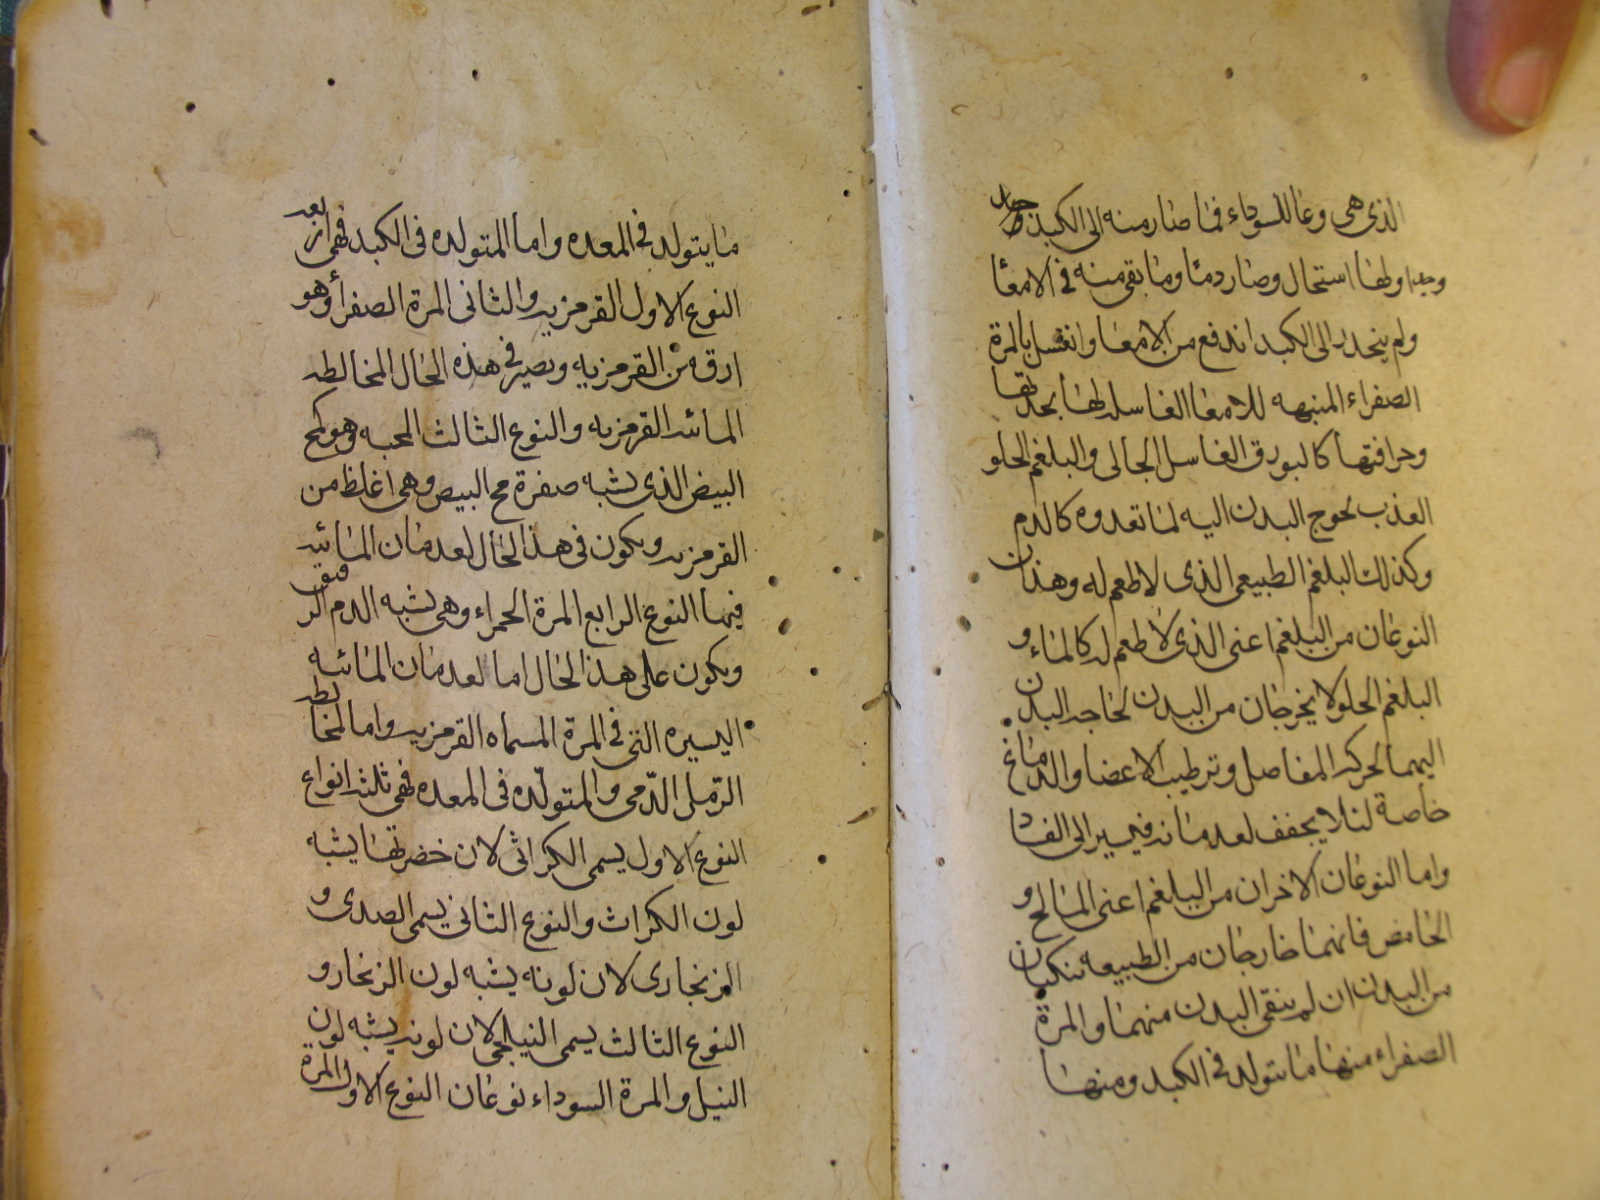 الذى هى وعا للسوداء فما صار منه الى الكبد
اولها استحال وصار دما وما بقى منه فى الامعا
ولم ينحدر الى الكبد اندفع من الامعا وانغسل بالمرة
الصفراء المنبهه للامعا الغاسله لها بحدتها
وحرافتها كالبورق الغاسل الجالى والبلغم الحلو
العذب يحوج البدن اليه لما تغدوه كالدم
وكذلك البلغم الطبيعى الذى لا طعم له وهذان
النوعان من البلغم اعنى الذى لا طعم له كالماء و
البلغم الحلو لا يخرجان من البدن لحاجه البدن
اليهما لحركه المفاصل وترطيب الاعضا والدماغ
خاصة لئلا يجفف لعدمانه فيصير الى الفساد
واما النوعان الاخران من البلغم اعنى المالح و
الحامض فانهما خارجان من الطبيعه
من البدن ان لم ينقى البدن منهما والمرة
الصفراء منها ما يتولد فى الكبد ومنها
ما يتولد فى المعده واما المتولده فى الكبد فهى اربعه
النوع الاول القرمزيه والثانى المرة الصفرا وهو
ارق من القرمزيه وتصير فى هذه الحال المخالطه
المائيه القرمزيه والنوع الثالث المحيه وهو كمح
البيض الذى يشبه صفرة مح البيض وهى اغلظ من
القرمزيه ويكون فى هذا الحال لعدمان المائيه
فيها النوع الرابع المرة الحمراء وهى تشبه الدم الرقيق
ويكون على هذا الحال اما لعدمان المائيه
اليسيره التى فى المرة المسماه القرمزيه واما لمخالطه
الرملى الدمى والمتولده فى المعده فهى ثلثه انواع
النوع الاول يسمى الكراثى لان خضرتها يشبه
لون الكراث والنوع الثانى يسمى الصدى و
الزنجارى لان لونه يشبه لون الزنجار و
النوع الثالث يسمى النيلجى لان لونه يشبه لون
النيل والمرة السوداء نوعان النوع الاول المرة